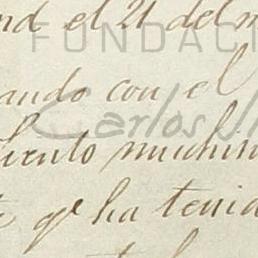 nd el 21 del m
FUNDACI
ando con el
Carlos
iento muchim
q.e ha tenid